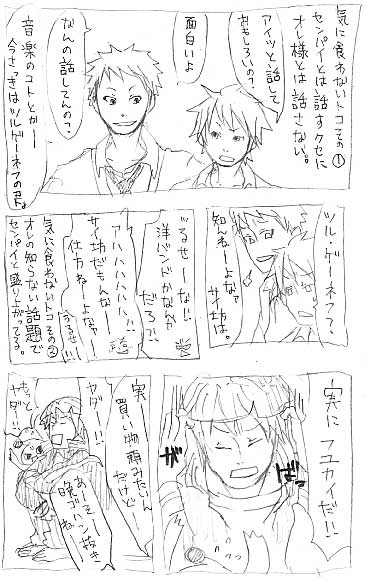 気に食わないトコその①
センパイとは話すクセに
オレ様とは話さない。
アイツと話して
おもしろいの？
面白いよ
なんの話してんの？
音楽のコトとかー
今さっきはツルゲーネフのコト。
ツル・ゲーネフ？
知んねーよなァ
サイ坊は。
つるせーな！！
洋バンドかなんか
だろ？！
アハハハハハハ！！
サイ坊だもんなー
仕方ねーよなァー
うるせー！！
気に食わないトコその②
オレの知らない話題で
センパイと盛り上がってる。
実に フユカイだ！！
がばっ
実
買い物頼みたいん
だけど
ヤダ！！
もっと
ヤダ！！
あーそー
晩ゴハン抜き
ね